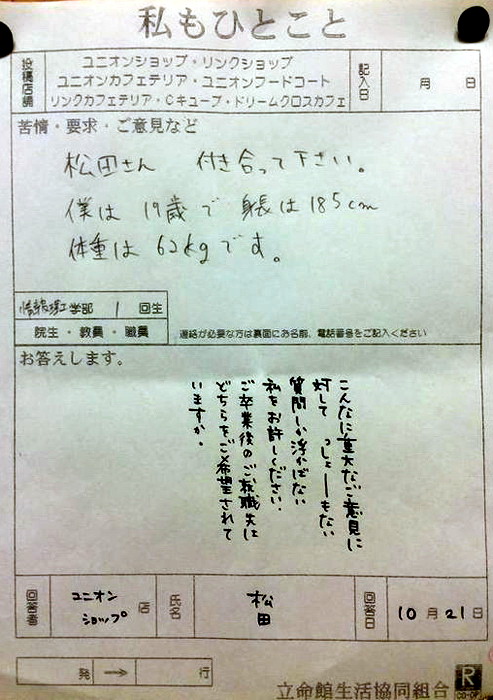 私もひとこと
投稿店舗
ユニオンショップ・リンクショップ
ユニオンカフェテリア・ユニオンフードコート
リンクカフェテリア・Cキューブ・ドリームクロスカフェ
記入日
月 日
苦情・要求・ご意見など
松田さん 付き合って下さい。
僕は 19歳で 身長は185cm
体重は 62kgです。
情報理工学部 1 回生
院生・教員・職員
連絡が必要な方は裏面にお名前、電話番号をご記入ください
お答えします。
こんなに重大なご意見に
対して っしょーもない
質問しか浮かばない
私をお許しください.
ご卒業後のご就職先は
どちらをご希望されて
いますか。
回答者
ユニオン
ショップ 店
氏名
松田
回答日
10月21日
発 → 行
立命館生活協同組合
R
CO-OP